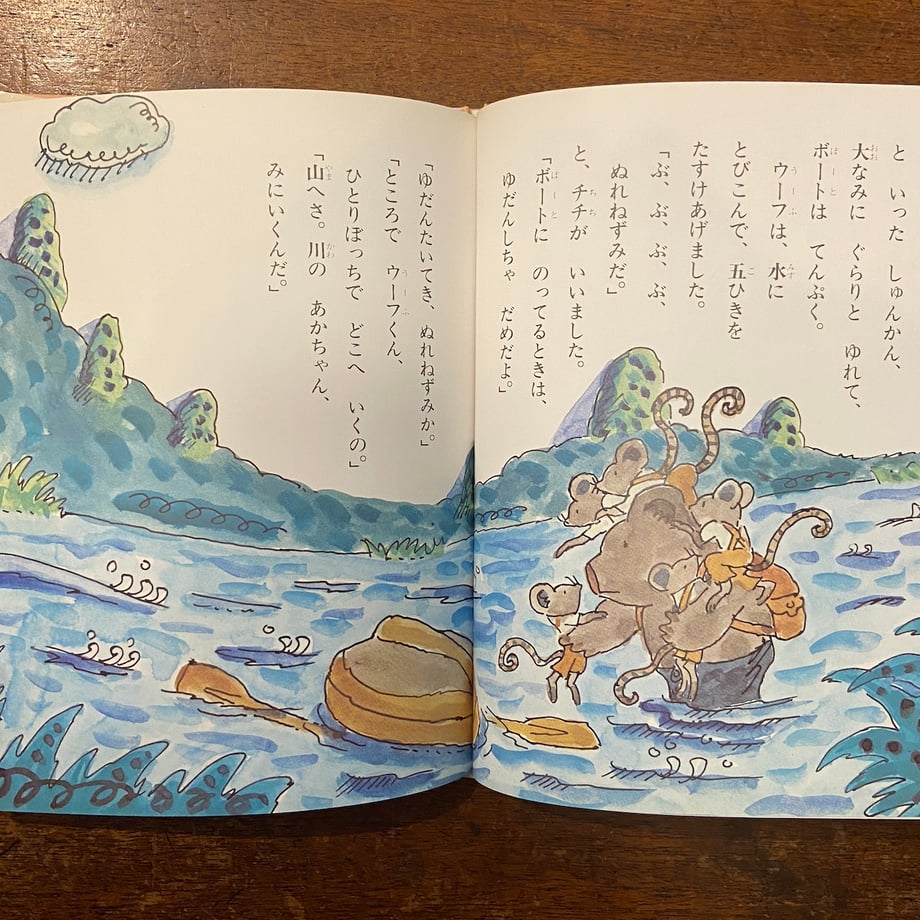 と いった しゅんかん、
大なみに ぐらりと ゆれて、
ボートは てんぷく。
ウーフは、水に
とびこんで、五ひきを
たすけあげました。
「ぶ、ぶ、ぶ、ぶ、
ぬれねずみだ。」
と、チチが いいました。
「ボートに のってるときは、
ゆだんしちゃ だめだよ。」
「ゆだんたいてき、ぬれねずみか。」
「ところで ウーフくん、
ひとりぼっちで どこへ いくの。」
「山へさ。川の あかちゃん、
みにいくんだ。」